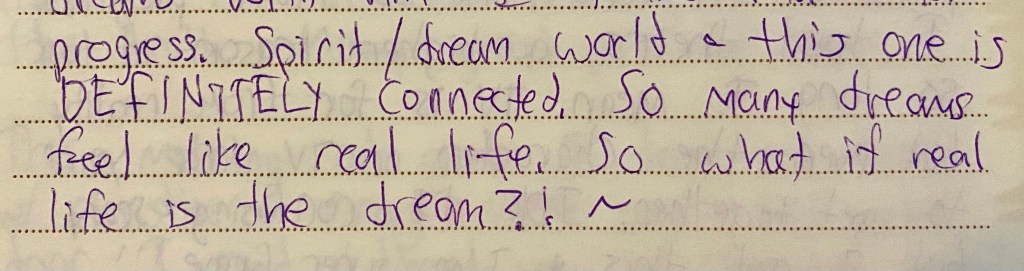 progress. Spirit/dream world & this one is
DEFINITELY Connected. So many dreams
feel like real life. So what if real
life is the dream?! ~